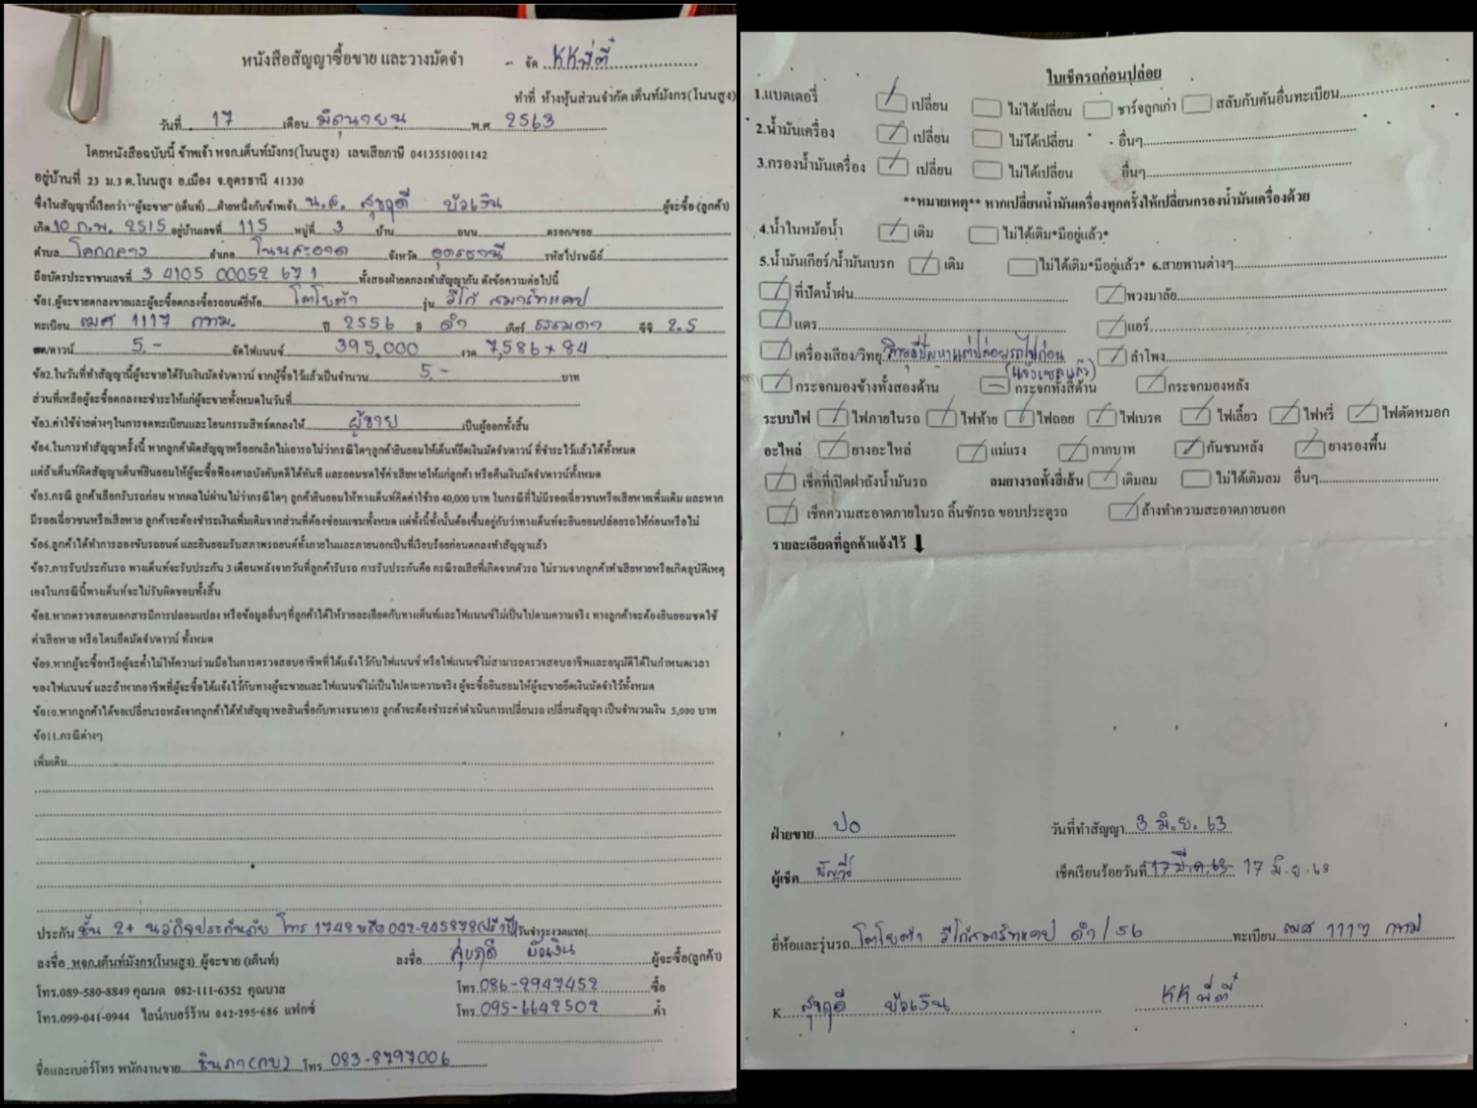 หนังสือสัญญาซื้อขาย และวางมัดจำ - จัด KKพี่ตี๋
ทำที่ ห้างหุ้นส่วนจำกัด เต็นท์มังกร(โนนสูง)
วันที่ 17 เดือน มิถุนายน พ.ศ 2563
โดยหนังสือฉบับนี้ ข้าพเจ้า หจก.เต็นท์มังกร(โนนสูง) เลขเสียภาษี 0413551001142
อยู่บ้านที่ 23 ม.3 ต.โนนสูง อ.เมือง จ.อุดรธานี 41330
ซึ่งในสัญญานี้เรียกว่า "ผู้จะขาย" (เต็นท์) ฝ่ายหนึ่งกับข้าพเจ้า น.ส. สุขฤดี บัวเงิน ผู้จะซื้อ (ลูกค้า)
เกิด 10 ก.พ. 2515 อยู่บ้านเลขที่ 115 หมู่ที่ 3 บ้าน ถนน ตรอก/ซอย
ตำบล โคกกลาง อำเภอ โนนสะอาด จังหวัด อุดรธานี รหัสไปรษณีย์
ถือบัตรประชาชนเลขที่ 3 4105 00052 67 1 ทั้งสองฝ่ายตกลงทำสัญญากัน ดังข้อความต่อไปนี้
ข้อ1.ผู้จะขายตกลงขายและผู้จะซื้อตกลงซื้อรถยนต์ยี่ห้อ โตโยต้า รุ่น วีโก้ สมาร์ทแคป
ทะเบียน ฒศ 1117 กทม. ปี 2556 สี ดำ เกียร์ ธรรมดา ซีซี 2.5
สด/ดาวน์ 5.- จัดไฟแนนซ์ 395,000 งวด 7,586 x 84
ข้อ2.ในวันที่ทำสัญญานี้ผู้จะขายได้รับเงินมัดจำ/ดาวน์ จากผู้ซื้อไว้แล้วเป็นจำนวน 5.- บาท
ส่วนที่เหลือผู้จะซื้อตกลงจะชำระให้แก่ผู้จะขายทั้งหมดในวันที่
ข้อ3.ค่าใช้จ่ายต่างๆในการจดทะเบียนและโอนกรรมสิทธ์ตกลงให้ ผู้ขาย เป็นผู้ออกทั้งสิ้น
ข้อ4.ในการทำสัญญาครั้งนี้ หากลูกค้าผิดสัญญาหรือยกเลิกไม่เอารถไม่ว่ากรณีใดๆ ลูกค้ายินยอมให้เต็นท์ยึดเงินมัดจำ/ดาวน์ ที่ชำระไว้แล้วได้ทั้งหมด
แต่ถ้าเต็นท์ผิดสัญญาเต็นท์ยินยอมให้ผู้จะซื้อฟ้องศาลบังคับคดีได้ทันที และยอมชดใช้ค่าเสียหายให้แก่ลูกค้า หรือคืนเงินมัดจำ/ดาวน์ทั้งหมด
ข้อ5.กรณี ลูกค้าเลือกรับรถก่อน หากผลไม่ผ่านไม่ว่ากรณีใดๆ ลูกค้ายินยอมให้ทางเต็นท์คิดค่าใช้รถ 40,000 บาท ในกรณีที่ไม่มีรอยเฉี่ยวชนหรือเสียหายเพิ่มเติม และหาก
มีรอยเฉี่ยวชนหรือเสียหาย ลูกค้าจะต้องชำระเงินเพิ่มเติมจากส่วนที่ต้องซ่อมแซมทั้งหมด แต่ทั้งนี้ทั้งนั้นต้องขึ้นอยู่กับว่าทางเต็นท์จะยินยอมปล่อยรถให้ก่อนหรือไม่
ข้อ6.ลูกค้าได้ทำการลองขับรถยนต์ และยินยอมรับสภาพรถยนต์ทั้งภายในและภายนอกเป็นที่เรียบร้อยก่อนตกลงทำสัญญาแล้ว
ข้อ7.การรับประกันรถ ทางเต็นท์จะรับประกัน 3 เดือนหลังจากวันที่ลูกค้ารับรถ การรับประกันคือ กรณีรถเสียที่เกิดจากตัวรถ ไม่รวมจากลูกค้าทำเสียหายหรือเกิดอุบัติเหตุ
เองในกรณีนี้ทางเต็นท์จะไม่รับผิดชอบทั้งสิ้น
ข้อ8.หากตรวจสอบเอกสารมีการปลอมแปลง หรือข้อมูลอื่นๆที่ลูกค้าได้ให้รายละเอียดกับทางเต็นท์และไฟแนนซ์ไม่เป็นไปตามความจริง ทางลูกค้าจะต้องยินยอมชดใช้
ค่าเสียหาย หรือโดนยึดมัดจำ/ดาวน์ ทั้งหมด
ข้อ9.หากผู้จะซื้อหรือผู้จะค้ำไม่ให้ความร่วมมือในการตรวจสอบอาชีพที่ได้แจ้งไว้กับไฟแนนซ์ หรือไฟแนนซ์ไม่สามารถตรวจสอบอาชีพและอนุมัติได้ในกำหนดเวลา
ของไฟแนนซ์ และถ้าหากอาชีพที่ผู้จะซื้อได้แจ้งไว้กับทางผู้จะขายและไฟแนนซ์ไม่เป็นไปตามความจริง ผู้จะซื้อยินยอมให้ผู้จะขายยึดเงินมัดจำไว้ทั้งหมด
ข้อ10.หากลูกค้าได้ขอเปลี่ยนรถหลังจากลูกค้าได้ทำสัญญาขอสินเชื่อกับทางธนาคาร ลูกค้าจะต้องชำระค่าดำเนินการเปลี่ยนรถ เปลี่ยนสัญญา เป็นจำนวนเงิน 5,000 บาท
ข้อ11.กรณีต่างๆ
เพิ่มเติม
ประกัน ชั้น 2+ นวกิจประกันภัย โทร 1748 หรือ 042-245878(ฟรี 1ปี) (วันชำระงวดแรก)
ลงชื่อ หจก.เต็นท์มังกร(โนนสูง) ผู้จะขาย (เต็นท์) ลงชื่อ สุขฤดี บัวเงิน ผู้จะซื้อ(ลูกค้า)
โทร.089-580-8849 คุณมด 082-111-6352 คุณบาส โทร 086-2947452 ซื้อ
โทร.099-041-0944 ไลน์/เบอร์ร้าน 042-295-686 แฟกซ์ โทร 095-6642502 ค้ำ
ชื่อและเบอร์โทร พนักงานขาย ชินภา(กบ) โทร 083-8797006
ใบเช็ครถก่อนปล่อย
1.แบตเตอรี่ เปลี่ยน ไม่ได้เปลี่ยน ชาร์จลูกเก่า สลับกับคันอื่นทะเบียน
2.น้ำมันเครื่อง เปลี่ยน ไม่ได้เปลี่ยน - อื่นๆ
3.กรองน้ำมันเครื่อง เปลี่ยน ไม่ได้เปลี่ยน อื่นๆ
**หมายเหตุ** หากเปลี่ยนน้ำมันเครื่องทุกครั้งให้เปลี่ยนกรองน้ำมันเครื่องด้วย
4.น้ำในหม้อน้ำ เติม ไม่ได้เติม*มีอยู่แล้ว*
5.น้ำมันเกียร์/น้ำมันเบรก เติม ไม่ได้เติม*มีอยู่แล้ว* 6.สายพานต่างๆ
ที่ปัดน้ำฝน พวงมาลัย
แตร แอร์
เครื่องเสียง/วิทยุ วิทยุมีปัญหาแต่ปล่อยรถไปก่อน ลำโพง
(แจ้งเซลแล้ว)
กระจกมองข้างทั้งสองด้าน กระจกทั้งสี่ด้าน กระจกมองหลัง
ระบบไฟ ไฟภายในรถ ไฟท้าย ไฟถอย ไฟเบรค ไฟเลี้ยว ไฟหรี่ ไฟตัดหมอก
อะไหล่ ยางอะไหล่ แม่แรง กากบาท กันชนหลัง ยางรองพื้น
เช็คที่เปิดฝาถังน้ำมันรถ ลมยางรถทั้งสี่เส้น เติมลม ไม่ได้เติมลม อื่นๆ
เช็คความสะอาดภายในรถ ลิ้นชักรถ ขอบประตูรถ ล้างทำความสะอาดภายนอก
รายละเอียดที่ลูกค้าแจ้งไว้
ฝ่ายขาย ปอ วันที่ทำสัญญา 3 มิ.ย. 63
ผู้เช็ค เช็คเรียบร้อยวันที่ 17 มี.ค.63 17 มิ.ย.63
ยี่ห้อและรุ่นรถ โตโยต้า วีโก้สมาร์ทแคป ดำ/56 ทะเบียน ฒศ 1117 กทม
K สุขฤดี บัวเงิน KK พี่ตี๋